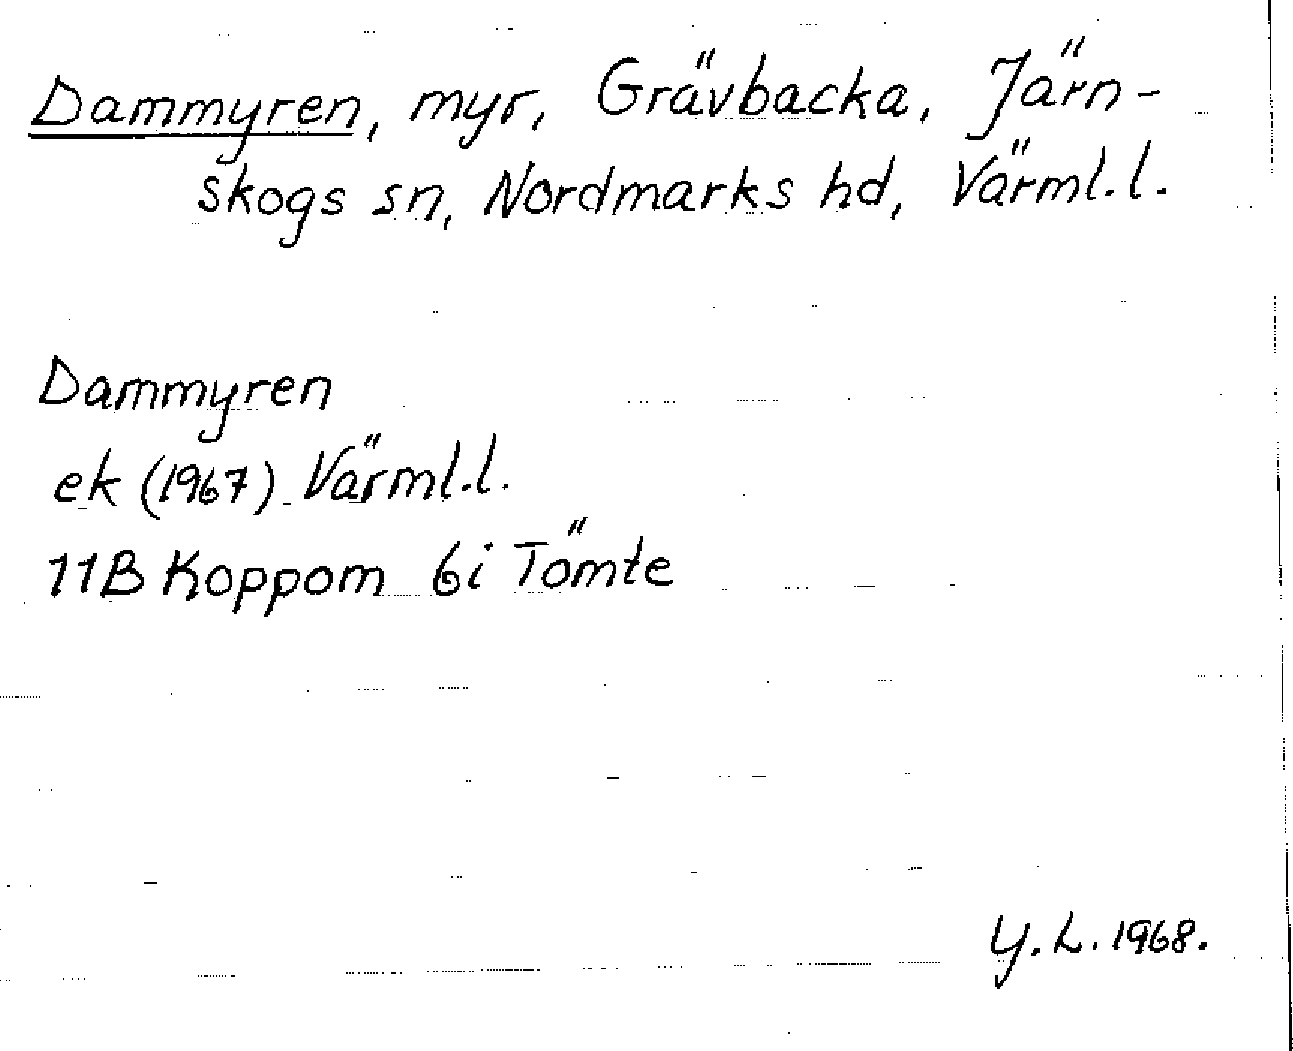 Dammyren, myr, Grävbacka, Järn-
skogs sn, Nordmarks hd, Värml.l.
Dammyren
ek (1967) Värml.l.
11B Koppom 6i Tömte
Y.L. 1968.